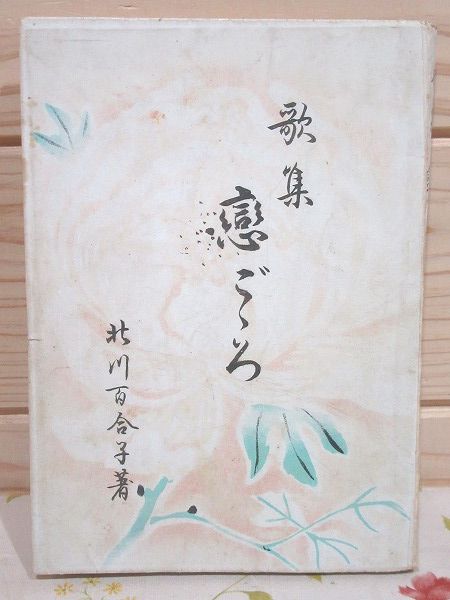 歌集
戀ごゝろ
北川百合子著